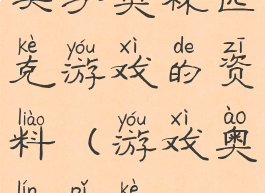 关于奥林匹
kè yóu xì de zī
克游戏的资
liào yóu xì ào
料（游戏奥
lín pǐ kè